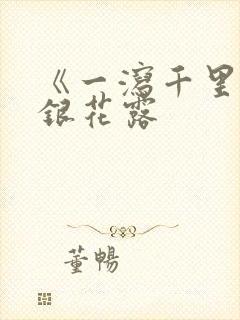 《一瀉千里
銀花露
董暢